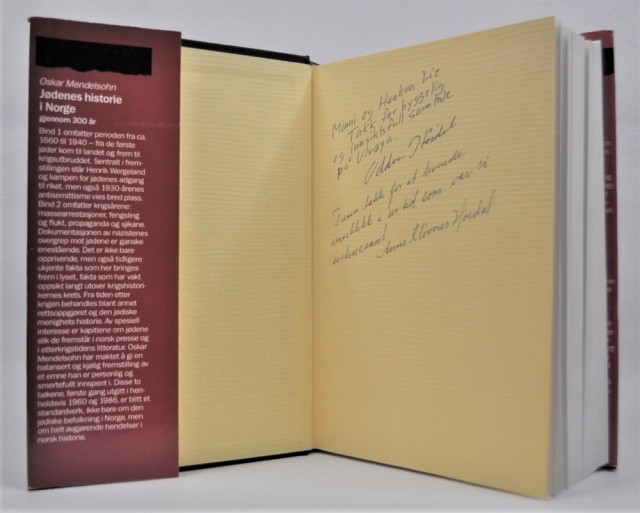 Oskar Mendelsohn
Jødenes historie
i Norge
gjennom 300 år
Bind 1 omfatter perioden fra ca.
1660 til 1940 – fra de første
jøder kom til landet og frem til
krigsutbruddet. Sentralt i frem-
stillingen står Henrik Wergeland
og kampen for jødenes adgang
til riket, men også 1930-årenes
antisemittisme vies bred plass.
Bind 2 omfatter krigsårene:
massearrestasjoner, fengsling
og flukt, propaganda og sjikane.
Dokumentasjonen av nazistenes
overgrep mot jødene er ganske
enestående. Det er ikke bare
opprivende, men også tidligere
ukjente fakta som her bringes
frem i lyset, fakta som har vakt
oppsikt langt utover krigshistori-
kernes krets. Fra tiden etter
krigen behandles blant annet
rettsoppgjøret og den jødiske
menighets historie. Av spesiell
interesse er kapitlene om jødene
slik de fremstår i norsk presse og
i etterkrigstidens litteratur. Oskar
Mendelsohn har maktet å gi en
balansert og kjølig fremstilling av
et emne han er personlig og
smertefullt innspent i. Disse to
bøkene, første gang utgitt i hen-
holdsvis 1960 og 1986, er blitt et
standardverk, ikke bare om den
jødiske befolkning i Norge, men
om helt avgjørende hendelser i
norsk historie.
Minni og Haakon Lie
Takk for hyggelig
og innsiktsfull samtale
på Ulvøya
Oddvar Høidal
Tusen takk for et levende
innblikk i en tid som var så
Anne Høidal